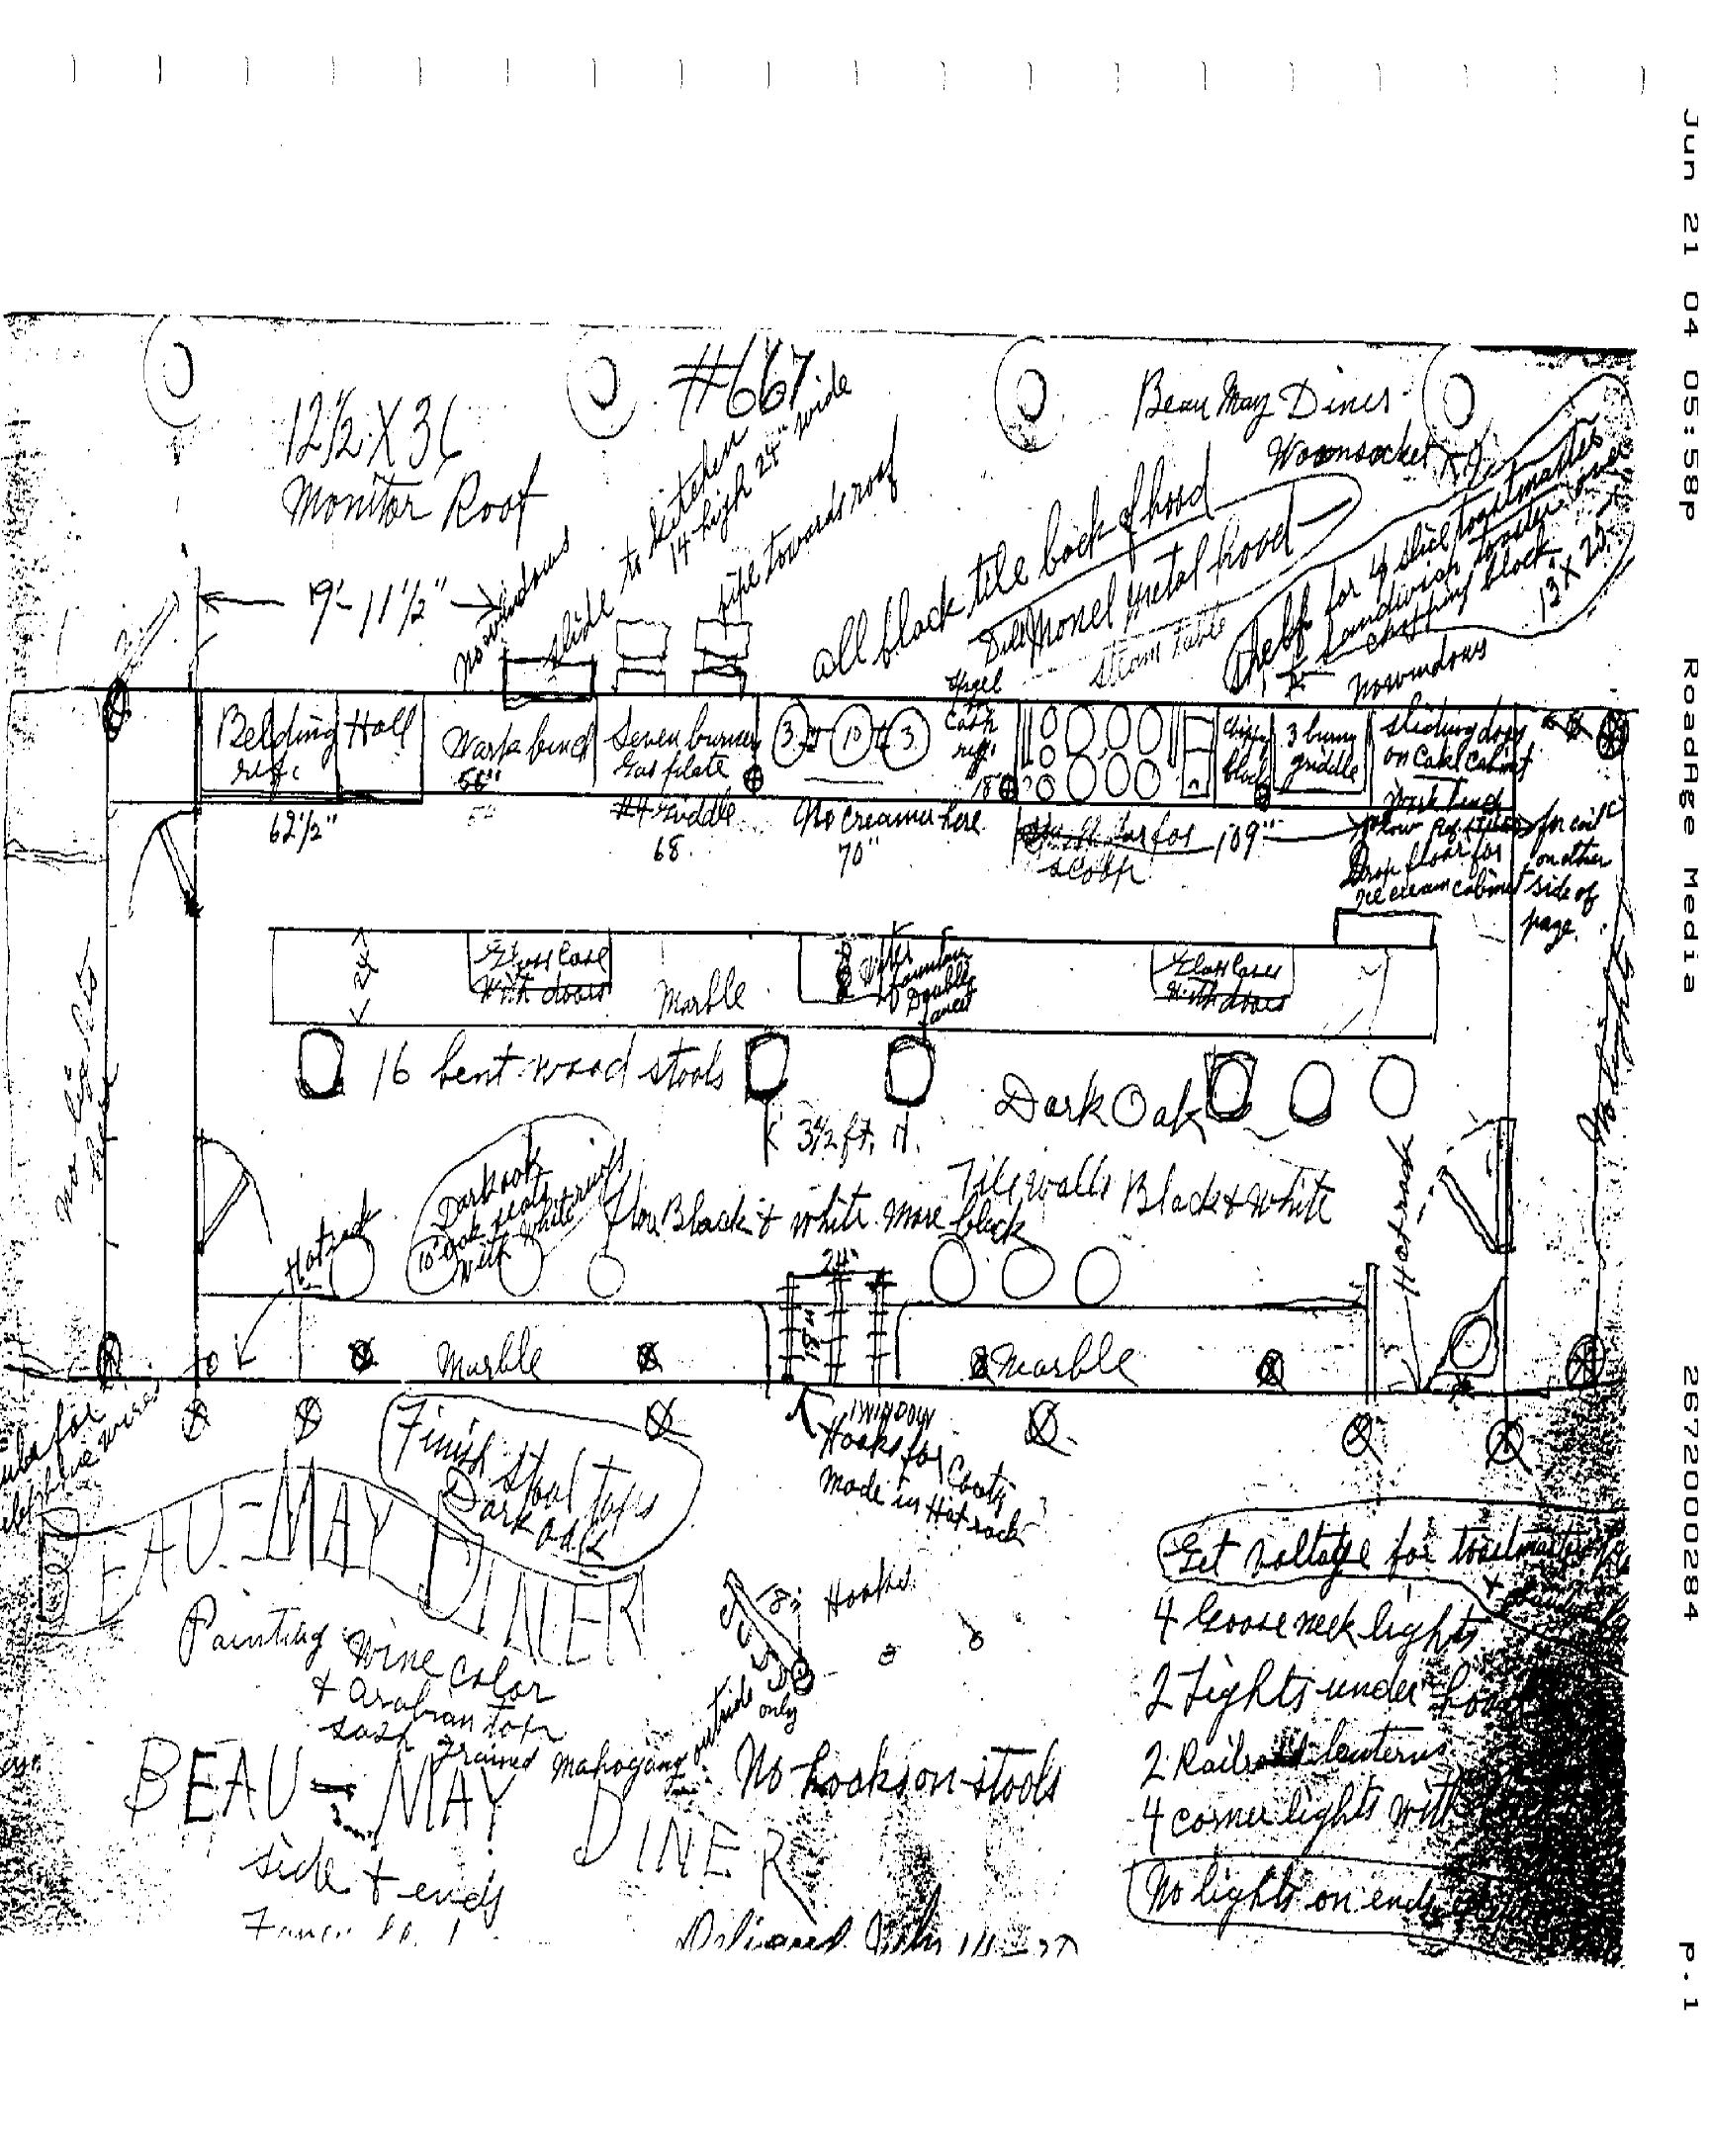 Jun 21 04 05:58p RoadAge Media 2672000284 p.1
#667
Beau May Diner
Woonsocket
12 1/2 X 36
Monitor Roof
9'-11 1/2"
no windows
slide to kitchen
14 high 24" wide
pipe towards roof
all black tile back of hood
Monel Metal hood
steam table
Shelf for 4 slice toastmaster
sandwich toaster over
chopping block
13 X 25
no windows
Belding Hall
Work bench
Seven burner
Gas plate
3
10
3
Cash
reg.
18"
block
3 burner
griddle
sliding doors
on Cake cabinet
Work bench
62 1/2"
griddle
68
No creamer here
70"
for
scoop
109"
Drop floor for
ice cream cabinet
for coil
on other
side of
page.
24
Glass Case
With doors
Marble
Water
fountain
Double
faucet
Glass Case
With doors
16 bent wood stools
Dark Oak
3 1/2 ft.
no lights
No lights
Dark oak
10 oak seats
with white
floor Black & white more black
Tile walls Black & White
Hat rack
Hat rack
24"
18"
Marble
Marble
for
telephone wires
Finish Stool tops
Dark Oak
Hooks for Coats
made in Hat rack
BEAU-MAY DINER
Painting wine color
& arabian top
sash
grained mahogany outside
only
18"
Hooks
No hooks on stools
BEAU-MAY DINER
side & ends
Delivered
Get voltage for toastmaster
4 Goose neck lights
2 Lights under hood
2 Railroad lanterns
4 corner lights with
No lights on ends